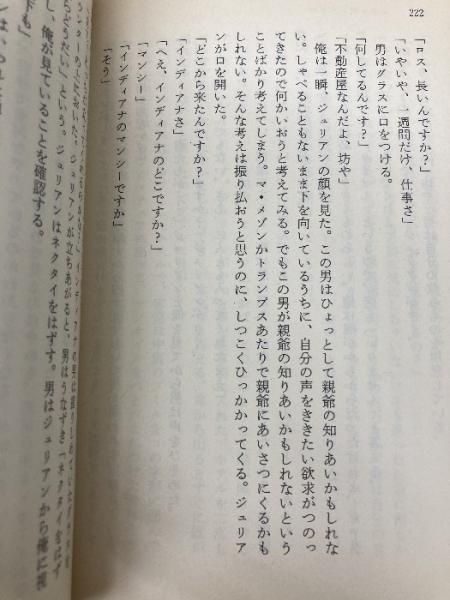 222
「ロス、長いんですか？」
「いやいや、一週間だけ、仕事さ」
男はグラスに口をつける。
「何してるんです？」
「不動産屋なんだよ、坊や」
俺は一瞬、ジュリアンの顔を見た。この男はひょっとして親爺の知りあいかもしれな
い。しゃべることもないまま下を向いているうちに、自分の声をききたい欲求がつのっ
てきたので何かいおうと考えてみる。でもこの男が親爺の知りあいかもしれないという
ことばかり考えてしまう。マ・メゾンかトランプスあたりで親爺にあいさつにくるかも
しれない。そんな考えは振り払おうと思うのに、しつこくひっかかってくる。ジュリア
ンが口を開いた。
「どこから来たんですか？」
「インディアナさ」
「へえ、インディアナのどこですか？」
「マンシー」
「インディアナのマンシーですか」
「そう」
インディアナの男は握りしめていた
ンターの おいた。ジュリアンが立ちあがると、男はうなずき「ネクタイをはず
らどうだい」という。ジュリアンはネクタイをはずす。男はジュリアンから俺に視
し、俺が見ていることを確認する。